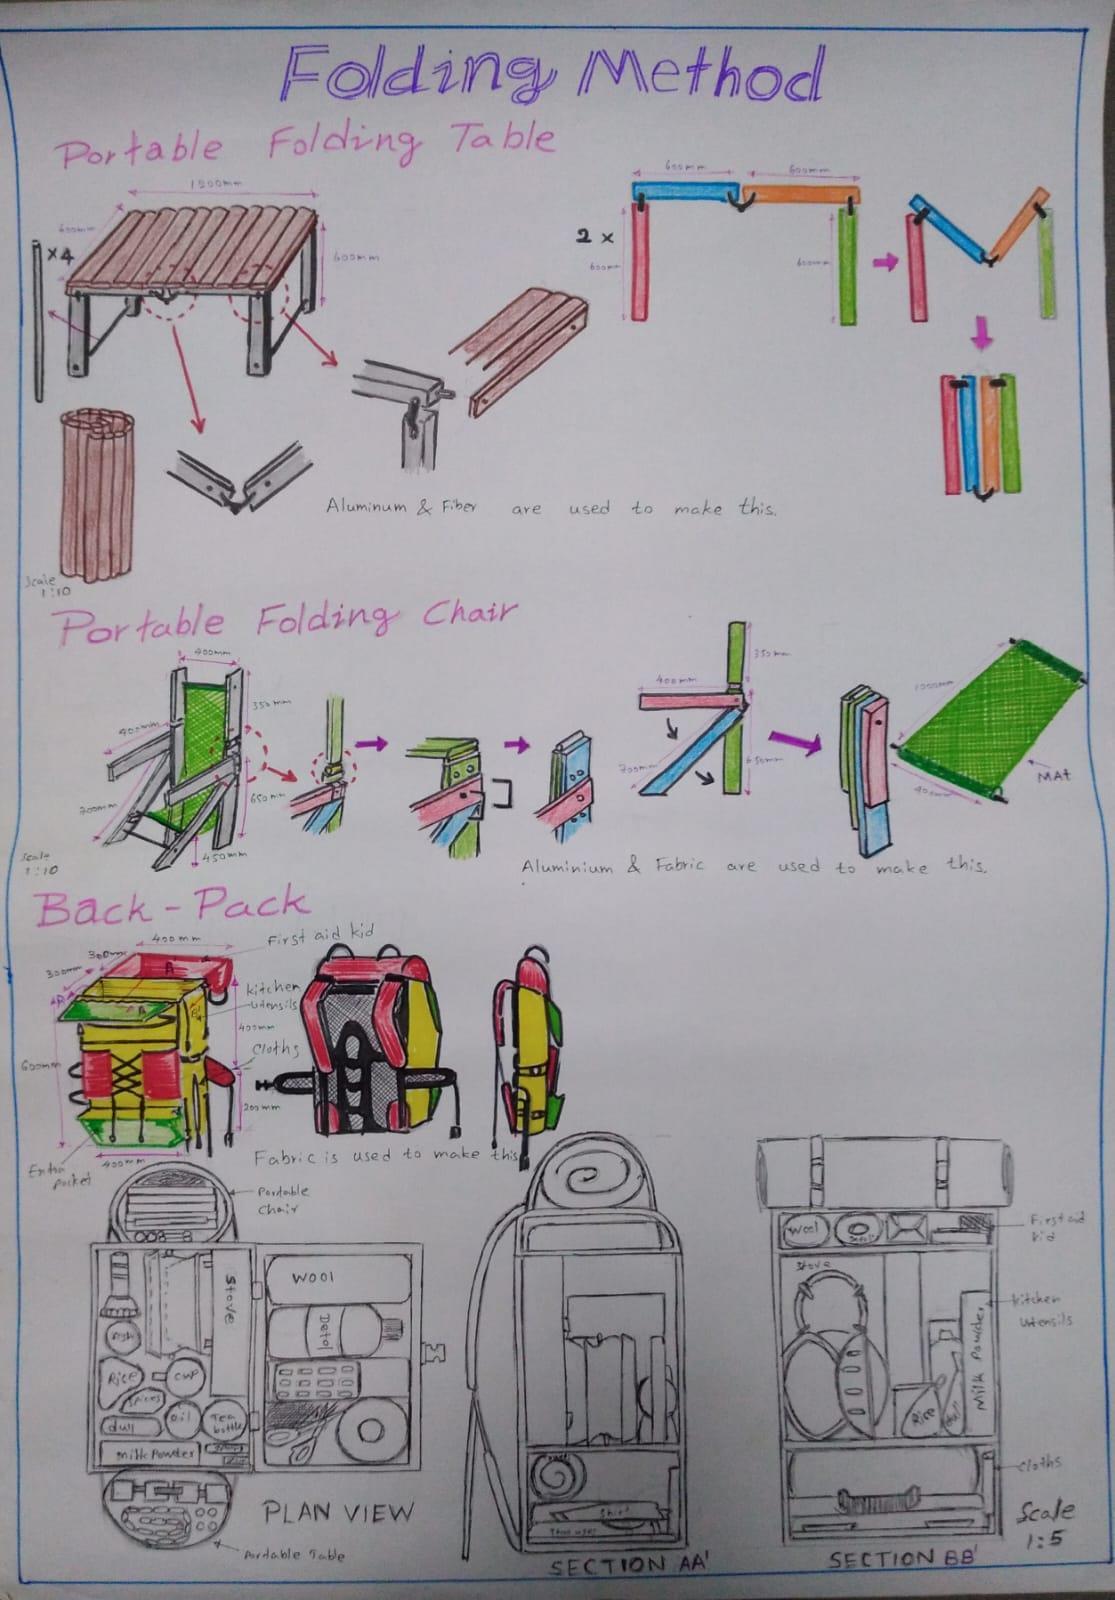 Folding Method
Portable Folding Table
1200mm
600mm
×4
600mm
600mm
600mm
2 ×
600mm
600mm
Aluminum & Fiber are used to make this.
Scale
1:10
Portable Folding Chair
400mm
350mm
400mm
700mm
650mm
450mm
350mm
400mm
700mm
650mm
1000mm
400mm
MAt
Scale
1:10
Aluminium & Fabric are used to make this.
Back-Pack
400mm
First aid kid
300mm
300mm
A'
A
B'
kitchen
utensils
400mm
Cloths
600mm
200mm
400mm
Extra
pocket
Fabric is used to make this
Portable
chair
Stove
WOOl
Detol
Rice
cup
spices
dull
oil
Tea
bottle
milk Powder
PLAN VIEW
Portable Table
Shirt
SECTION AA'
wool
First aid
kid
Stove
kitchen
utensils
Milk Powder
Rice
cloths
Scale
1:5
SECTION BB'